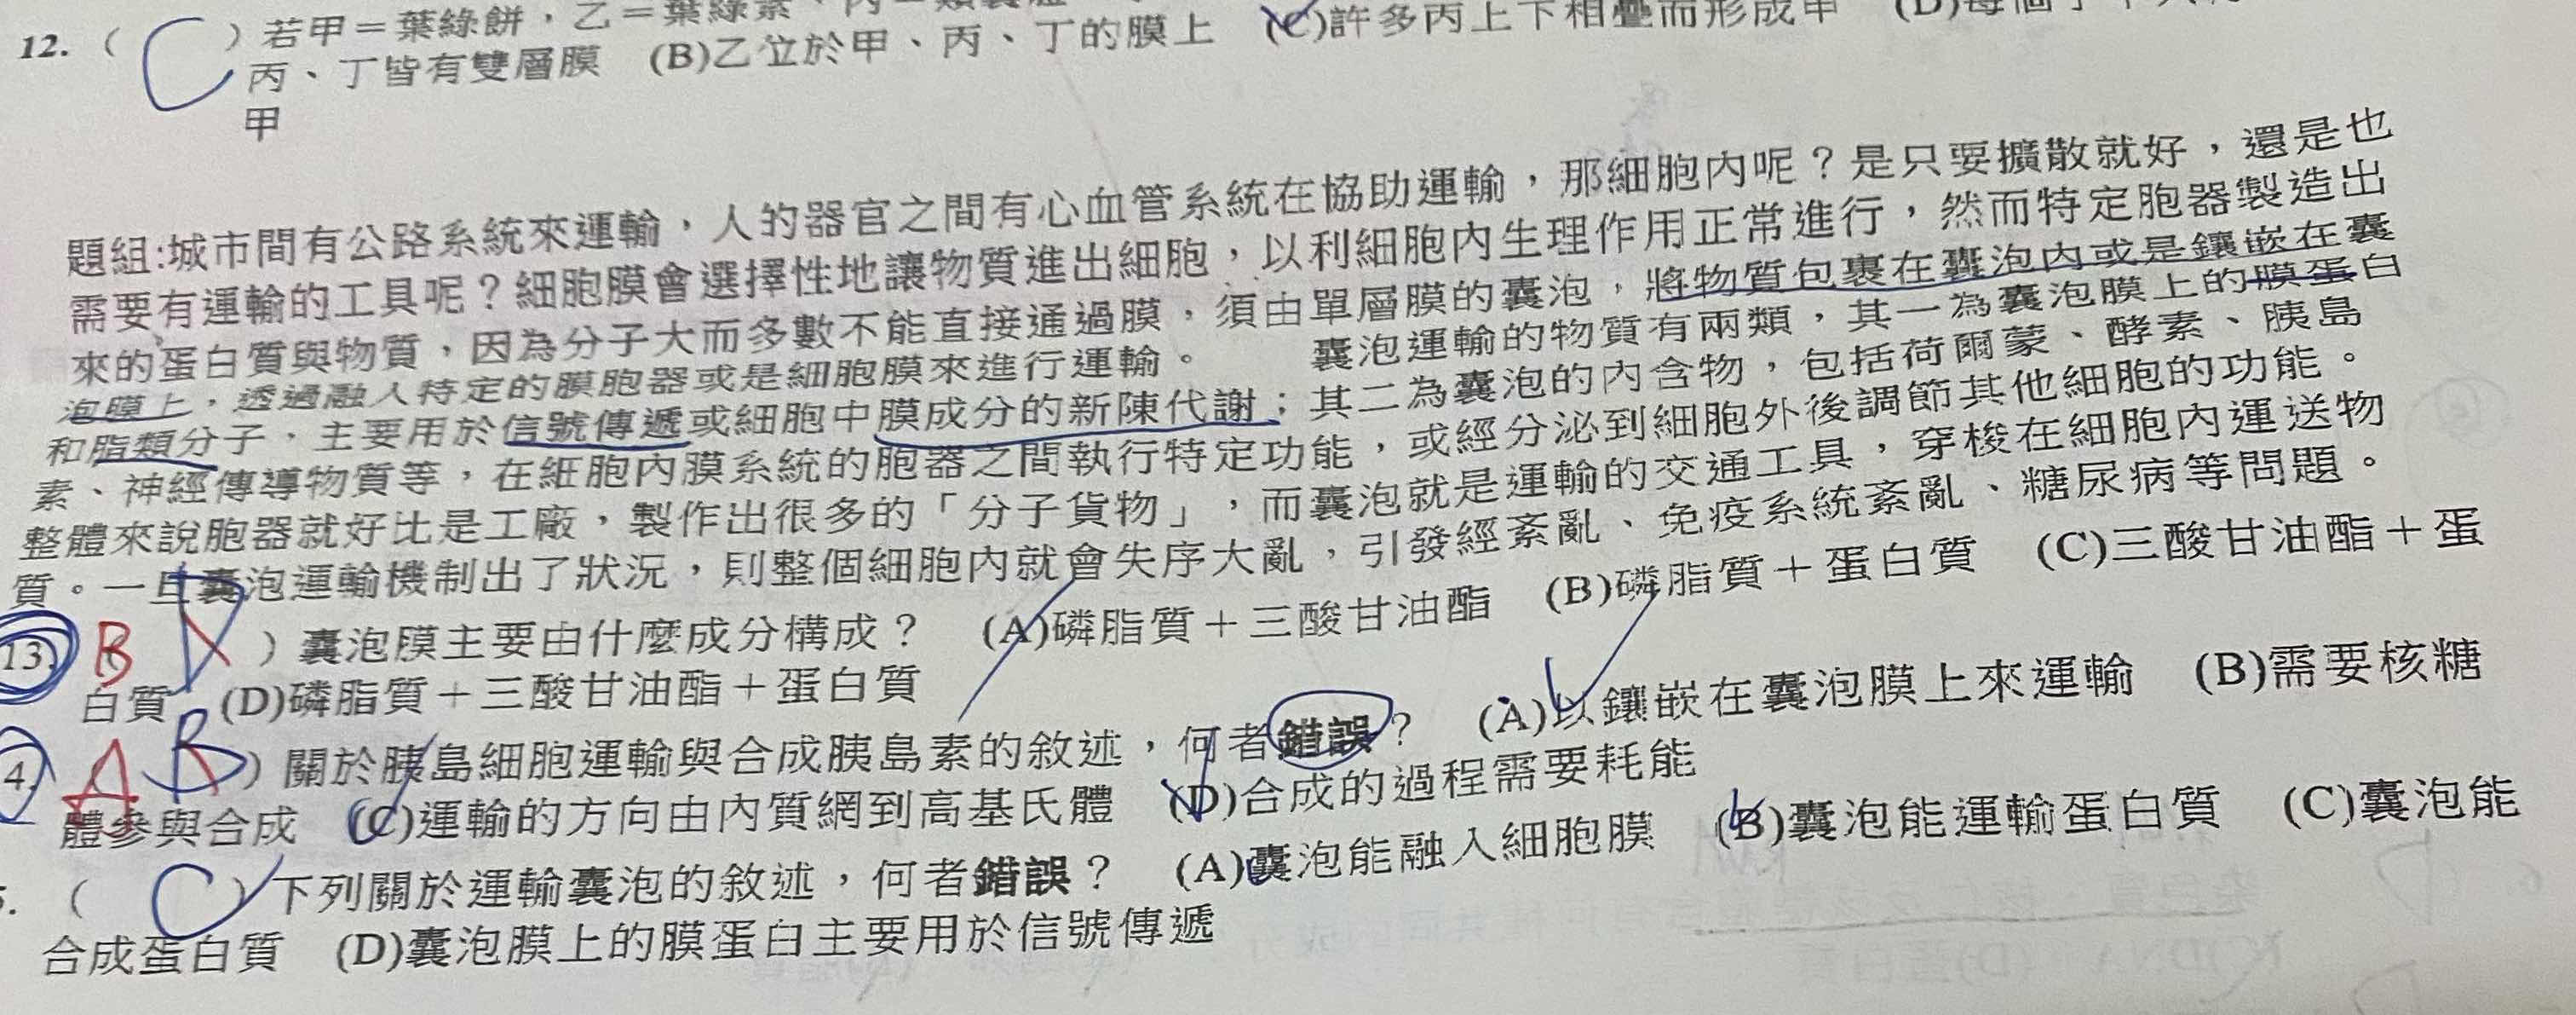 12. ( C ) 若甲＝葉綠餅，乙＝葉綠素、丙＝類囊體 (C)許多丙上下相疊而形成甲 (D)每個
丙、丁皆有雙層膜 (B)乙位於甲、丙、丁的膜上
甲
題組:城市間有公路系統來運輸，人的器官之間有心血管系統在協助運輸，那細胞內呢？是只要擴散就好，還是也
需要有運輸的工具呢？細胞膜會選擇性地讓物質進出細胞，以利細胞內生理作用正常進行，然而特定胞器製造出
來的蛋白質與物質，因為分子大而多數不能直接通過膜，須由單層膜的囊泡，將物質包裹在囊泡內或是鑲嵌在囊
泡膜上，透過融入特定的膜胞器或是細胞膜來進行運輸。 囊泡運輸的物質有兩類，其一為囊泡膜上的膜蛋白
和脂類分子，主要用於信號傳遞或細胞中膜成分的新陳代謝；其二為囊泡的內含物，包括荷爾蒙、酵素、胰島
素、神經傳導物質等，在細胞內膜系統的胞器之間執行特定功能，或經分泌到細胞外後調節其他細胞的功能。
整體來說胞器就好比是工廠，製作出很多的「分子貨物」，而囊泡就是運輸的交通工具，穿梭在細胞內運送物
質。一旦囊泡運輸機制出了狀況，則整個細胞內就會失序大亂，引發經紊亂、免疫系統紊亂、糖尿病等問題。
13. B D ) 囊泡膜主要由什麼成分構成？ (A)磷脂質＋三酸甘油酯 (B)磷脂質＋蛋白質 (C)三酸甘油酯＋蛋
白質 (D)磷脂質＋三酸甘油酯＋蛋白質
4. A B ) 關於胰島細胞運輸與合成胰島素的敘述，何者錯誤？ (A)以鑲嵌在囊泡膜上來運輸 (B)需要核糖
體參與合成 (C)運輸的方向由內質網到高基氏體 (D)合成的過程需要耗能
5. ( C ) 下列關於運輸囊泡的敘述，何者錯誤？ (A)囊泡能融入細胞膜 (B)囊泡能運輸蛋白質 (C)囊泡能
合成蛋白質 (D)囊泡膜上的膜蛋白主要用於信號傳遞